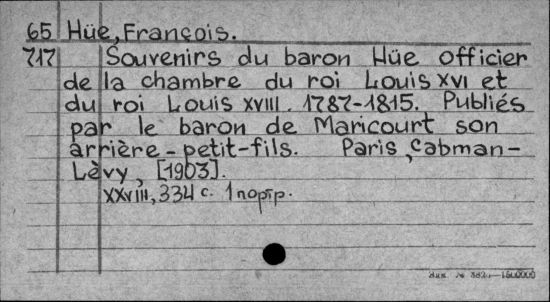 65 Hüe, François.
717 Souvenirs du baron Hüe officier
de la chambre du roi Louis XVI et
du roi Louis XVIII. 1787-1815. Publiés
par le baron de Maricourt son
arrière-petit-fils. Paris, Cabman-
Lèvy, [1903].
XXVIII, 334 c. 1 портр.